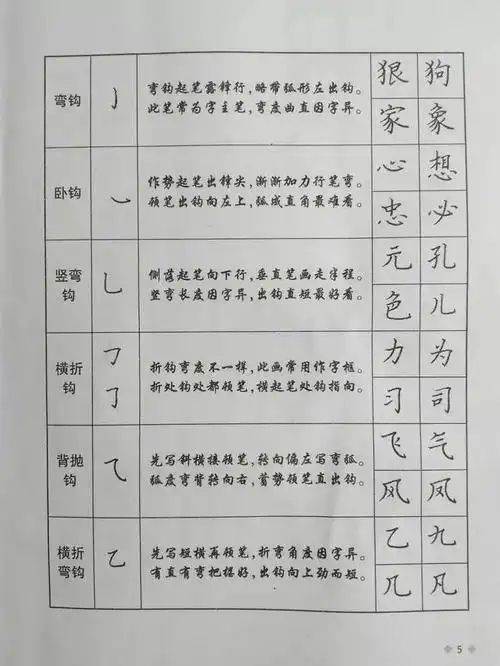 弯钩
弯钩起笔露锋行，略带弧形左出钩。
此笔常为字主笔，弯度曲直因字异。
狠 狗
家 象
卧钩
作势起笔出锋尖，渐渐加力行笔弯。
顿笔出钩向左上，弧成直角最难看。
心 想
忠 必
竖弯
钩
侧落起笔向下行，垂直笔画走半程。
竖弯长度因字异，出钩直短最好看。
元 孔
色 儿
横折
钩
折钩弯度不一样，此画常用作字框。
折处钩处都顿笔，横起笔处钩指向。
力 为
习 司
背抛
钩
先写斜横接顿笔，转向偏左写弯弧。
弧度弯背转向右，蓄势顿笔直出钩。
飞 气
风 凤
横折
弯钩
先写短横再顿笔，折弯角度因字异。
有直有弯把握好，出钩向上劲而短。
乙 九
几 凡
5